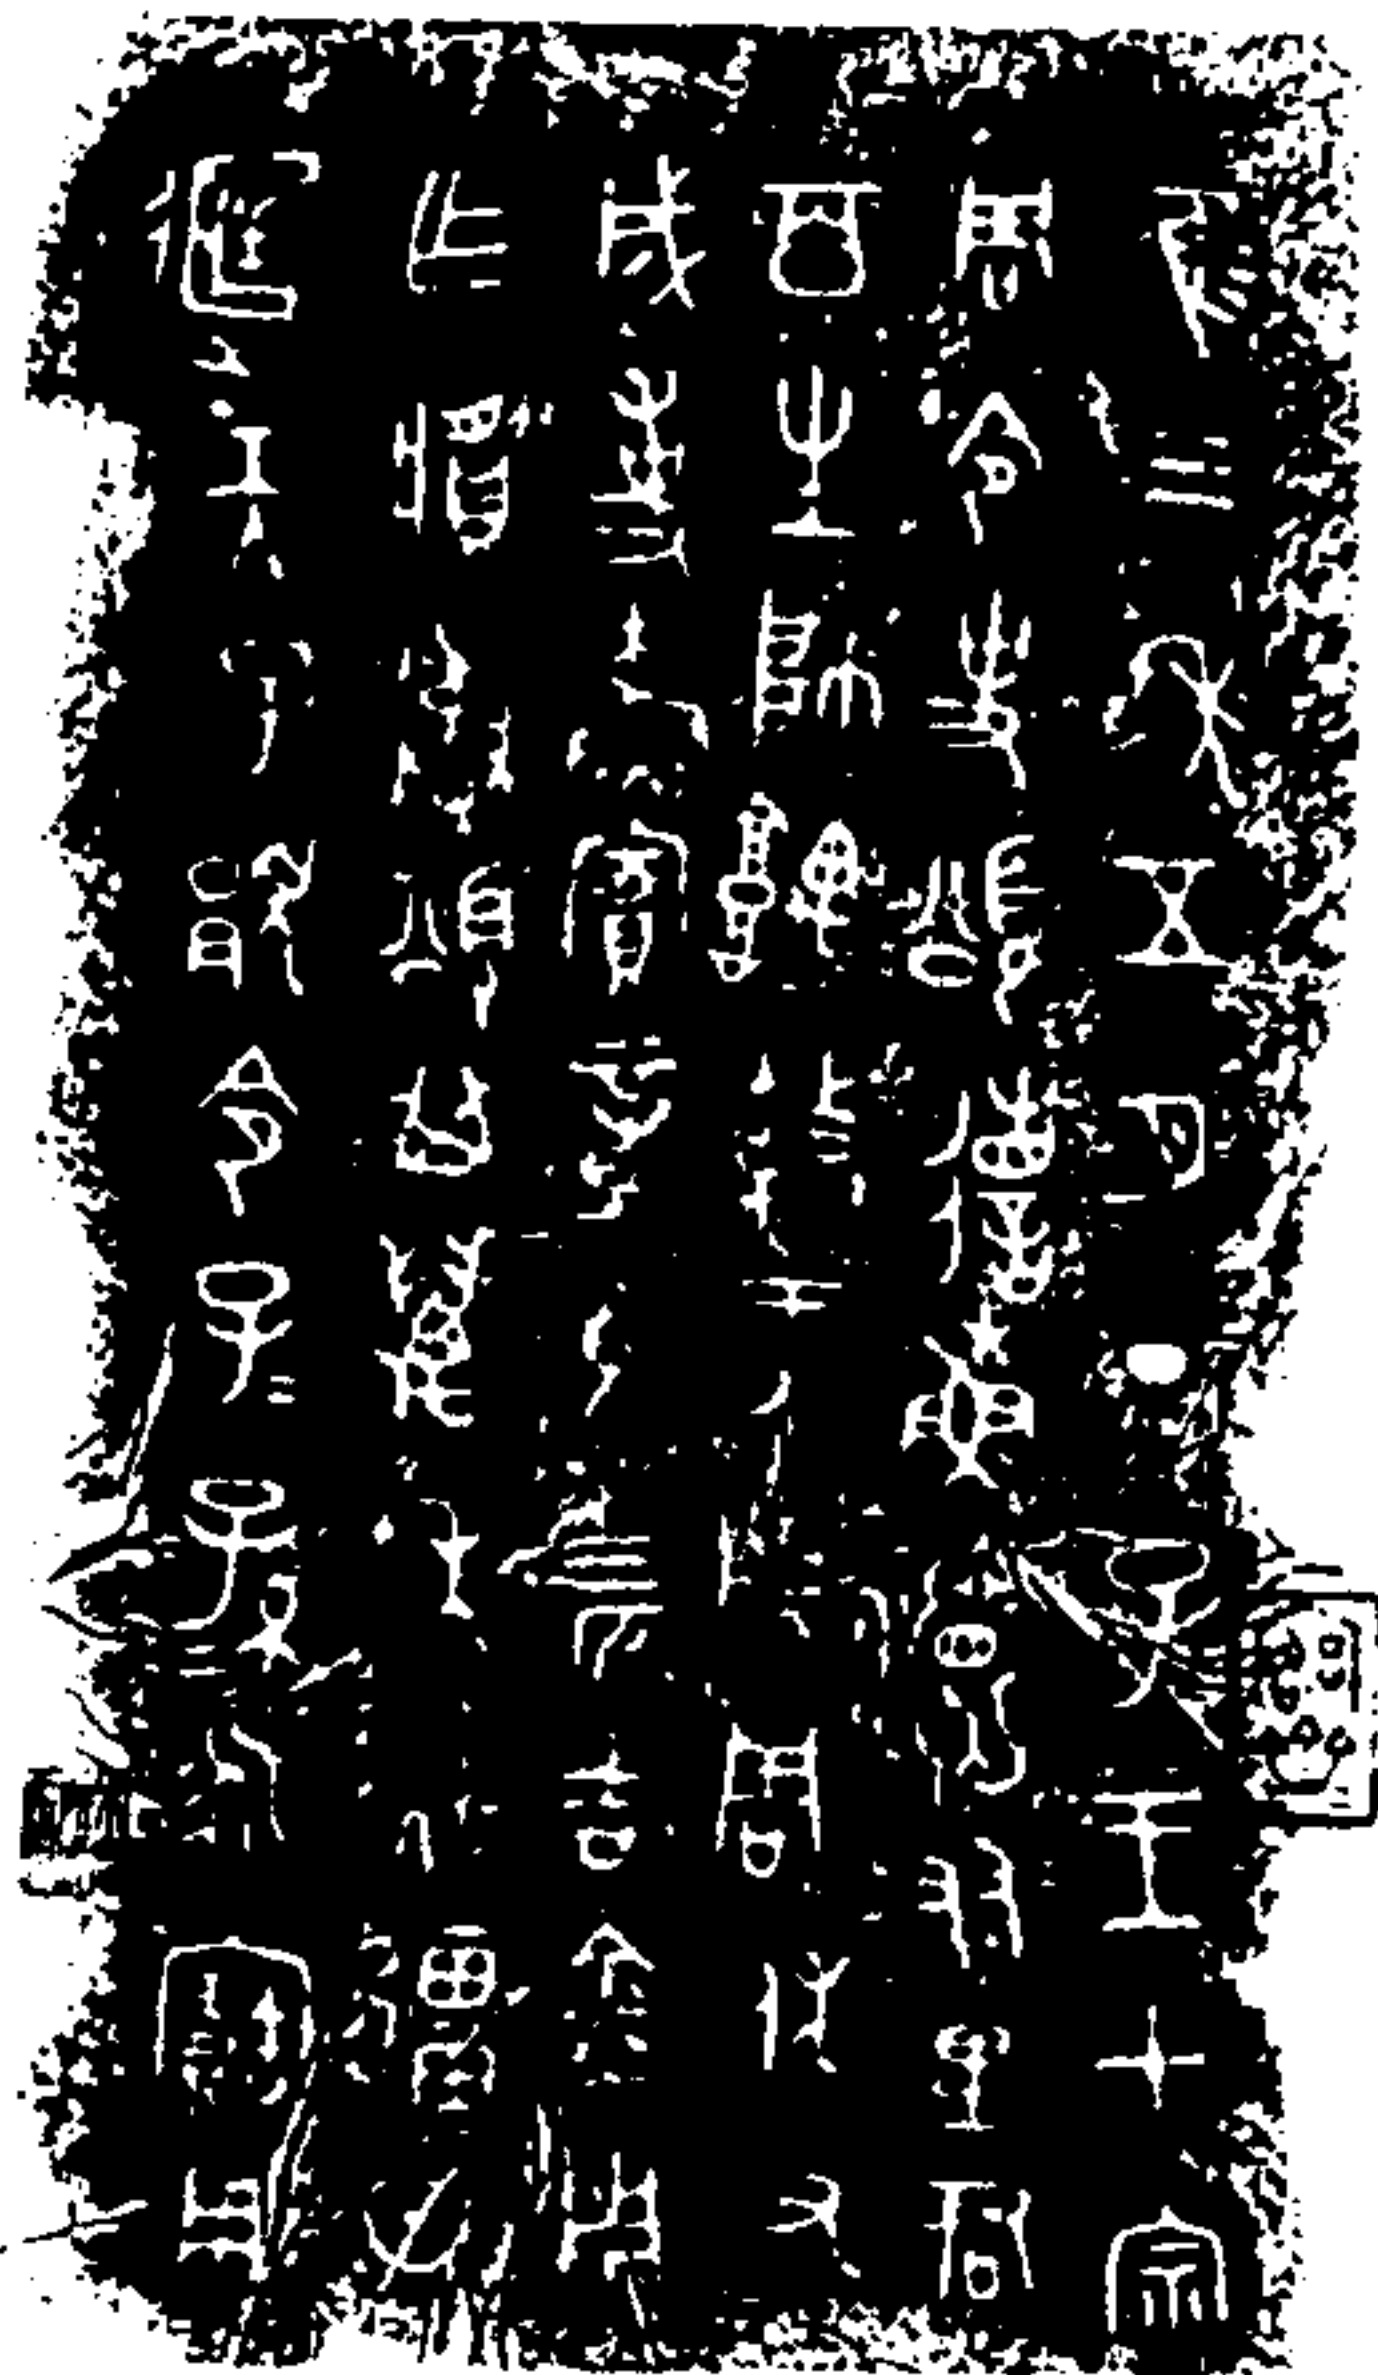 隹三年五月丁子王才宗
周令史頌省穌友里君
百生帥盩于成周休又
成事穌賓章馬四匹吉金用
乍彝頌其萬年無疆日
天子顯令子=孫=永寶用